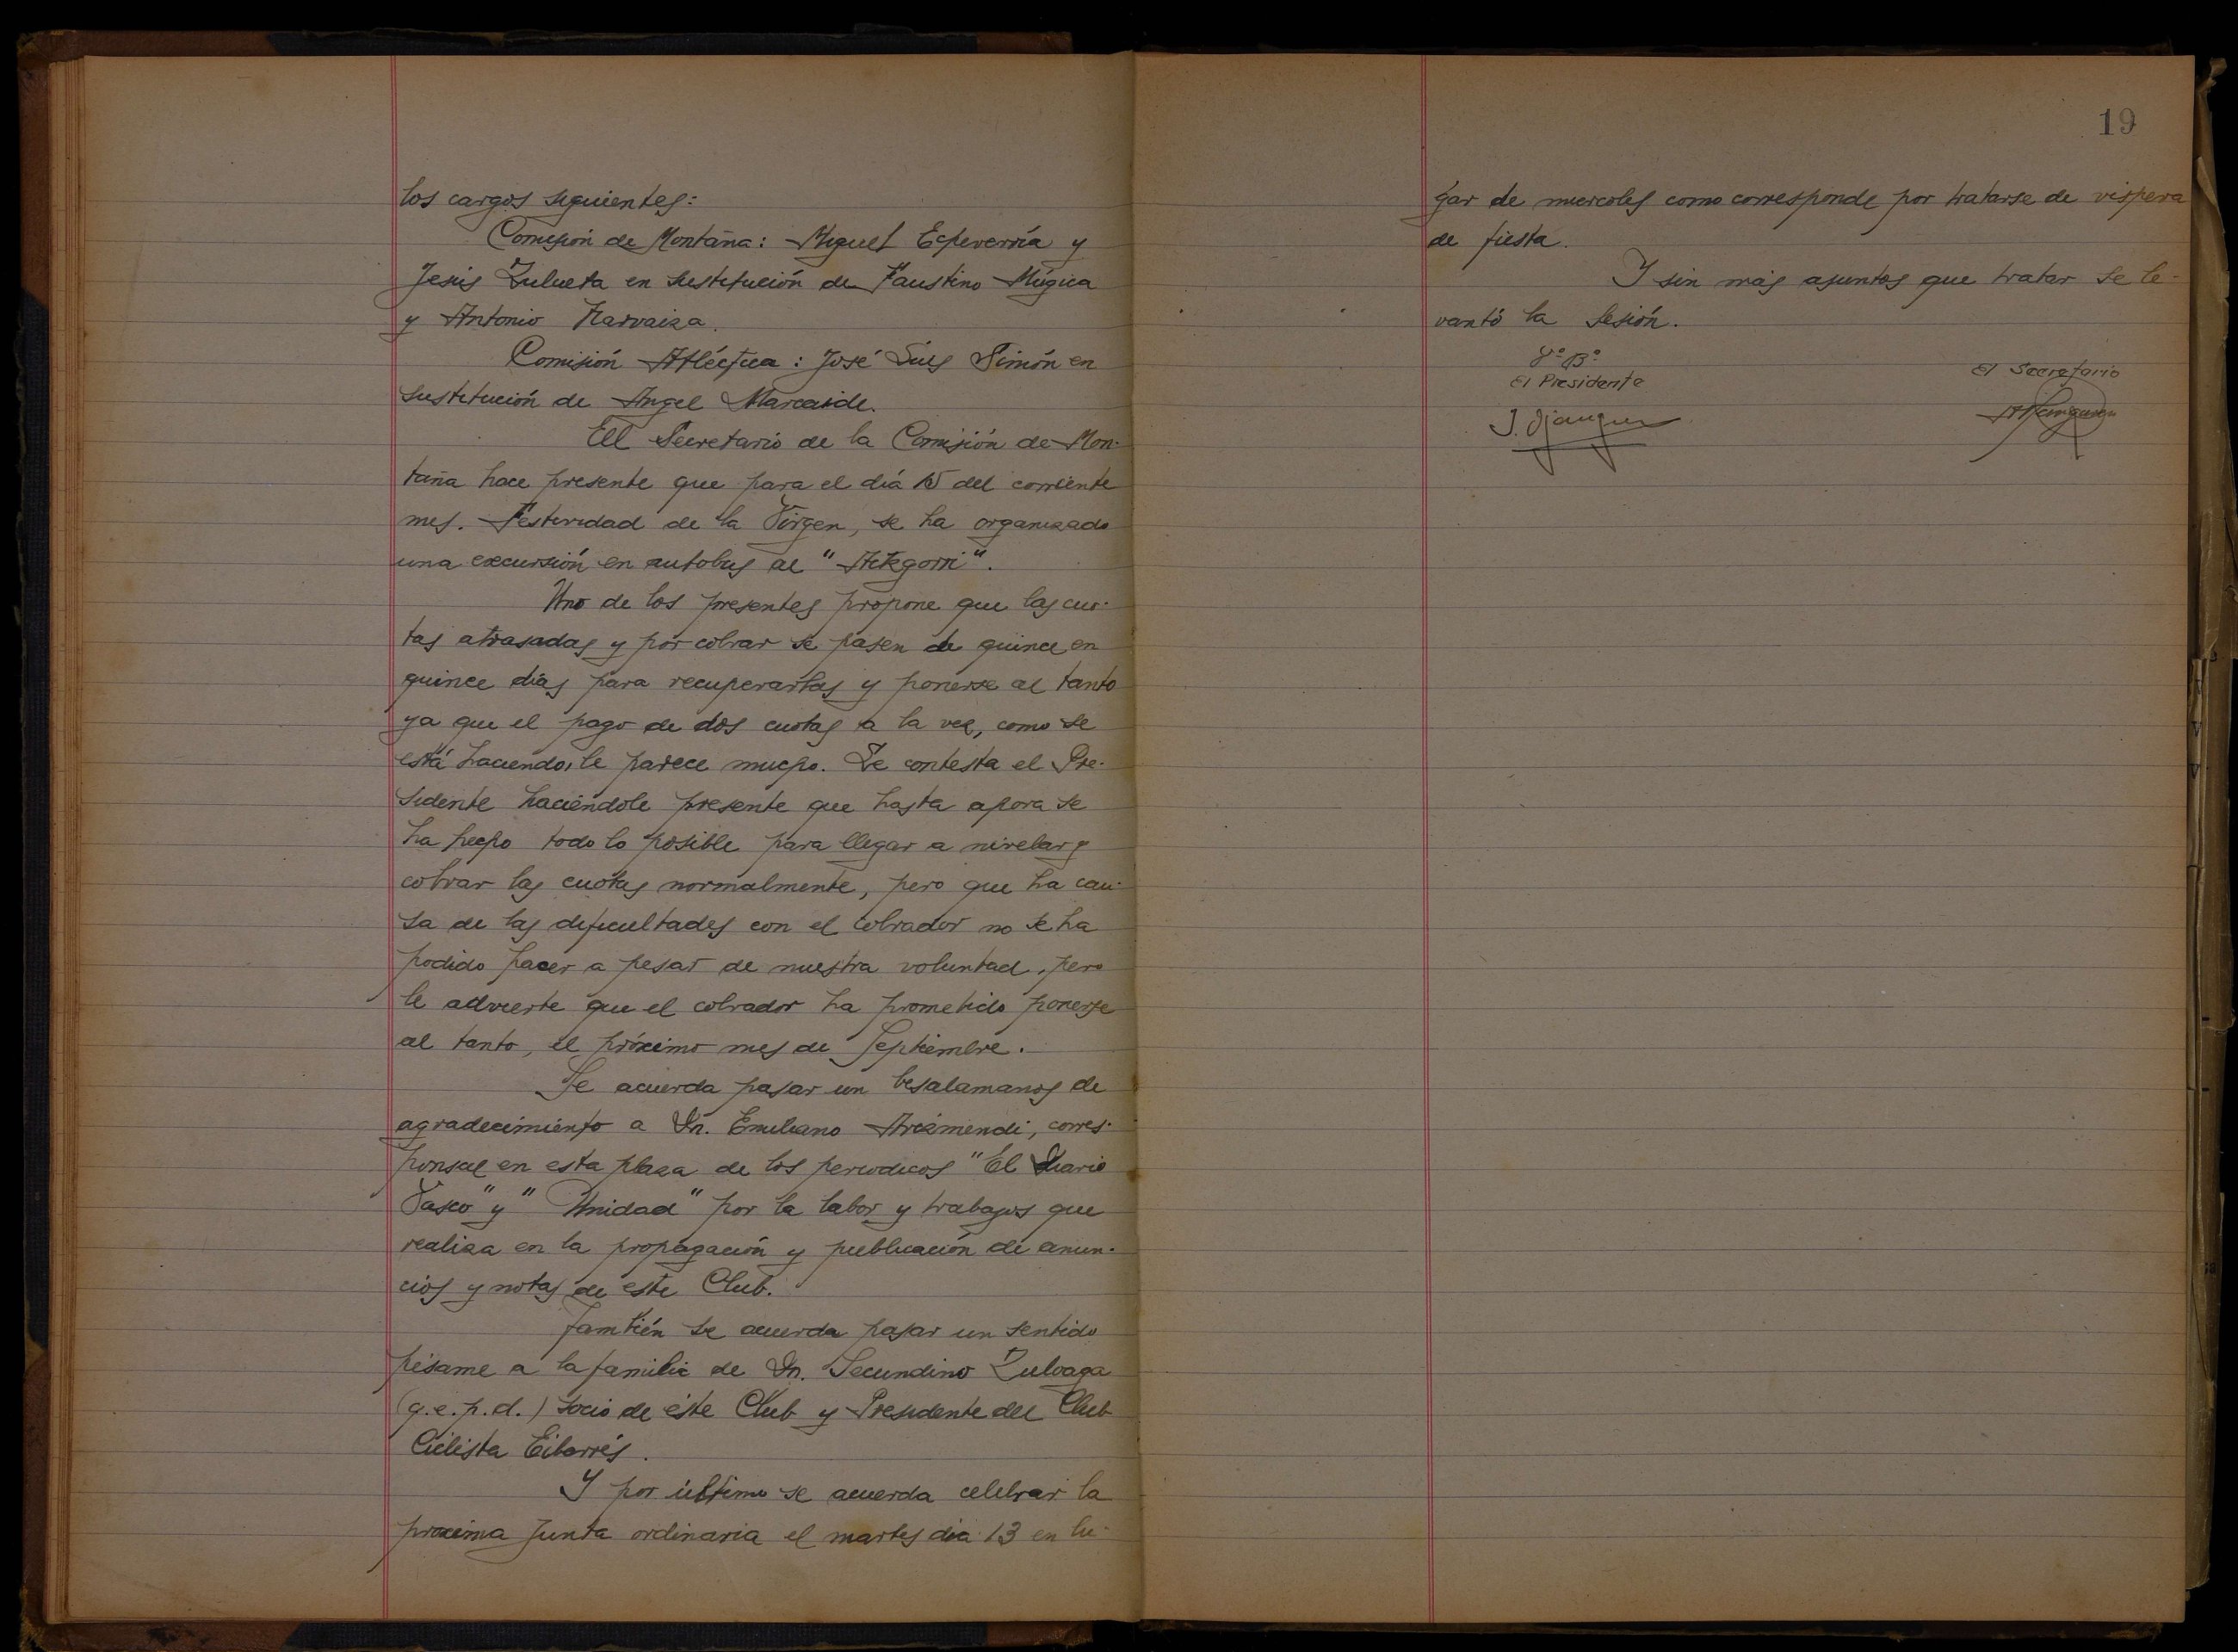 los cargos siguientes:
Comisión de Montaña: Miguel Echeverría y
Jesús Zulueta en sustitución de Faustino Múgica
y Antonio Narvaiza.
Comisión Atléctica: José Luis Simón en
sustitución de Angel Marcaide.
El Secretario de la Comisión de Mon-
taña hace presente que para el día 15 del corriente
mes. Festividad de la Virgen, se ha organizado
una excursión en autobus al "Aitzgorri".
Uno de los presentes propone que las cuo-
tas atrasadas y por cobrar se pasen de quince en
quince días para recuperarlas y ponerse al tanto
ya que el pago de dos cuotas a la vez, como se
está haciendo, le parece mucho. Le contesta el Pre-
sidente haciéndole presente que hasta ahora se
ha hecho todo lo posible para llegar a nivelar y
cobrar las cuotas normalmente, pero que ha cau-
sa de las dificultades con el cobrador no se ha
podido hacer a pesar de nuestra voluntad, pero
le advierte que el cobrador ha prometido ponerse
al tanto, el próximo mes de Septiembre.
Se acuerda pasar un besalamanos de
agradecimiento a Dn. Emiliano Arizmendi, corres-
ponsal en esta plaza de los periodicos "El Diario
Vasco" y "Unidad" por la labor y trabajos que
realiza en la propagación y publicación de anun-
cios y notas de este Club.
También se acuerda pasar un sentido
pésame a la familia de Dn. Secundino Zuloaga
(q.e.p.d.) socio de éste Club y Presidente del Club
Ciclista Eibarrés.
Y por último se acuerda celebrar la
proxima Junta ordinaria el martes dia 13 en lu-
19
gar de miercoles como corresponde por tratarse de vispera
de fiesta.
Y sin más asuntos que tratar se le-
vantó la sesión.
Vº Bº
El Presidente
El Secretario